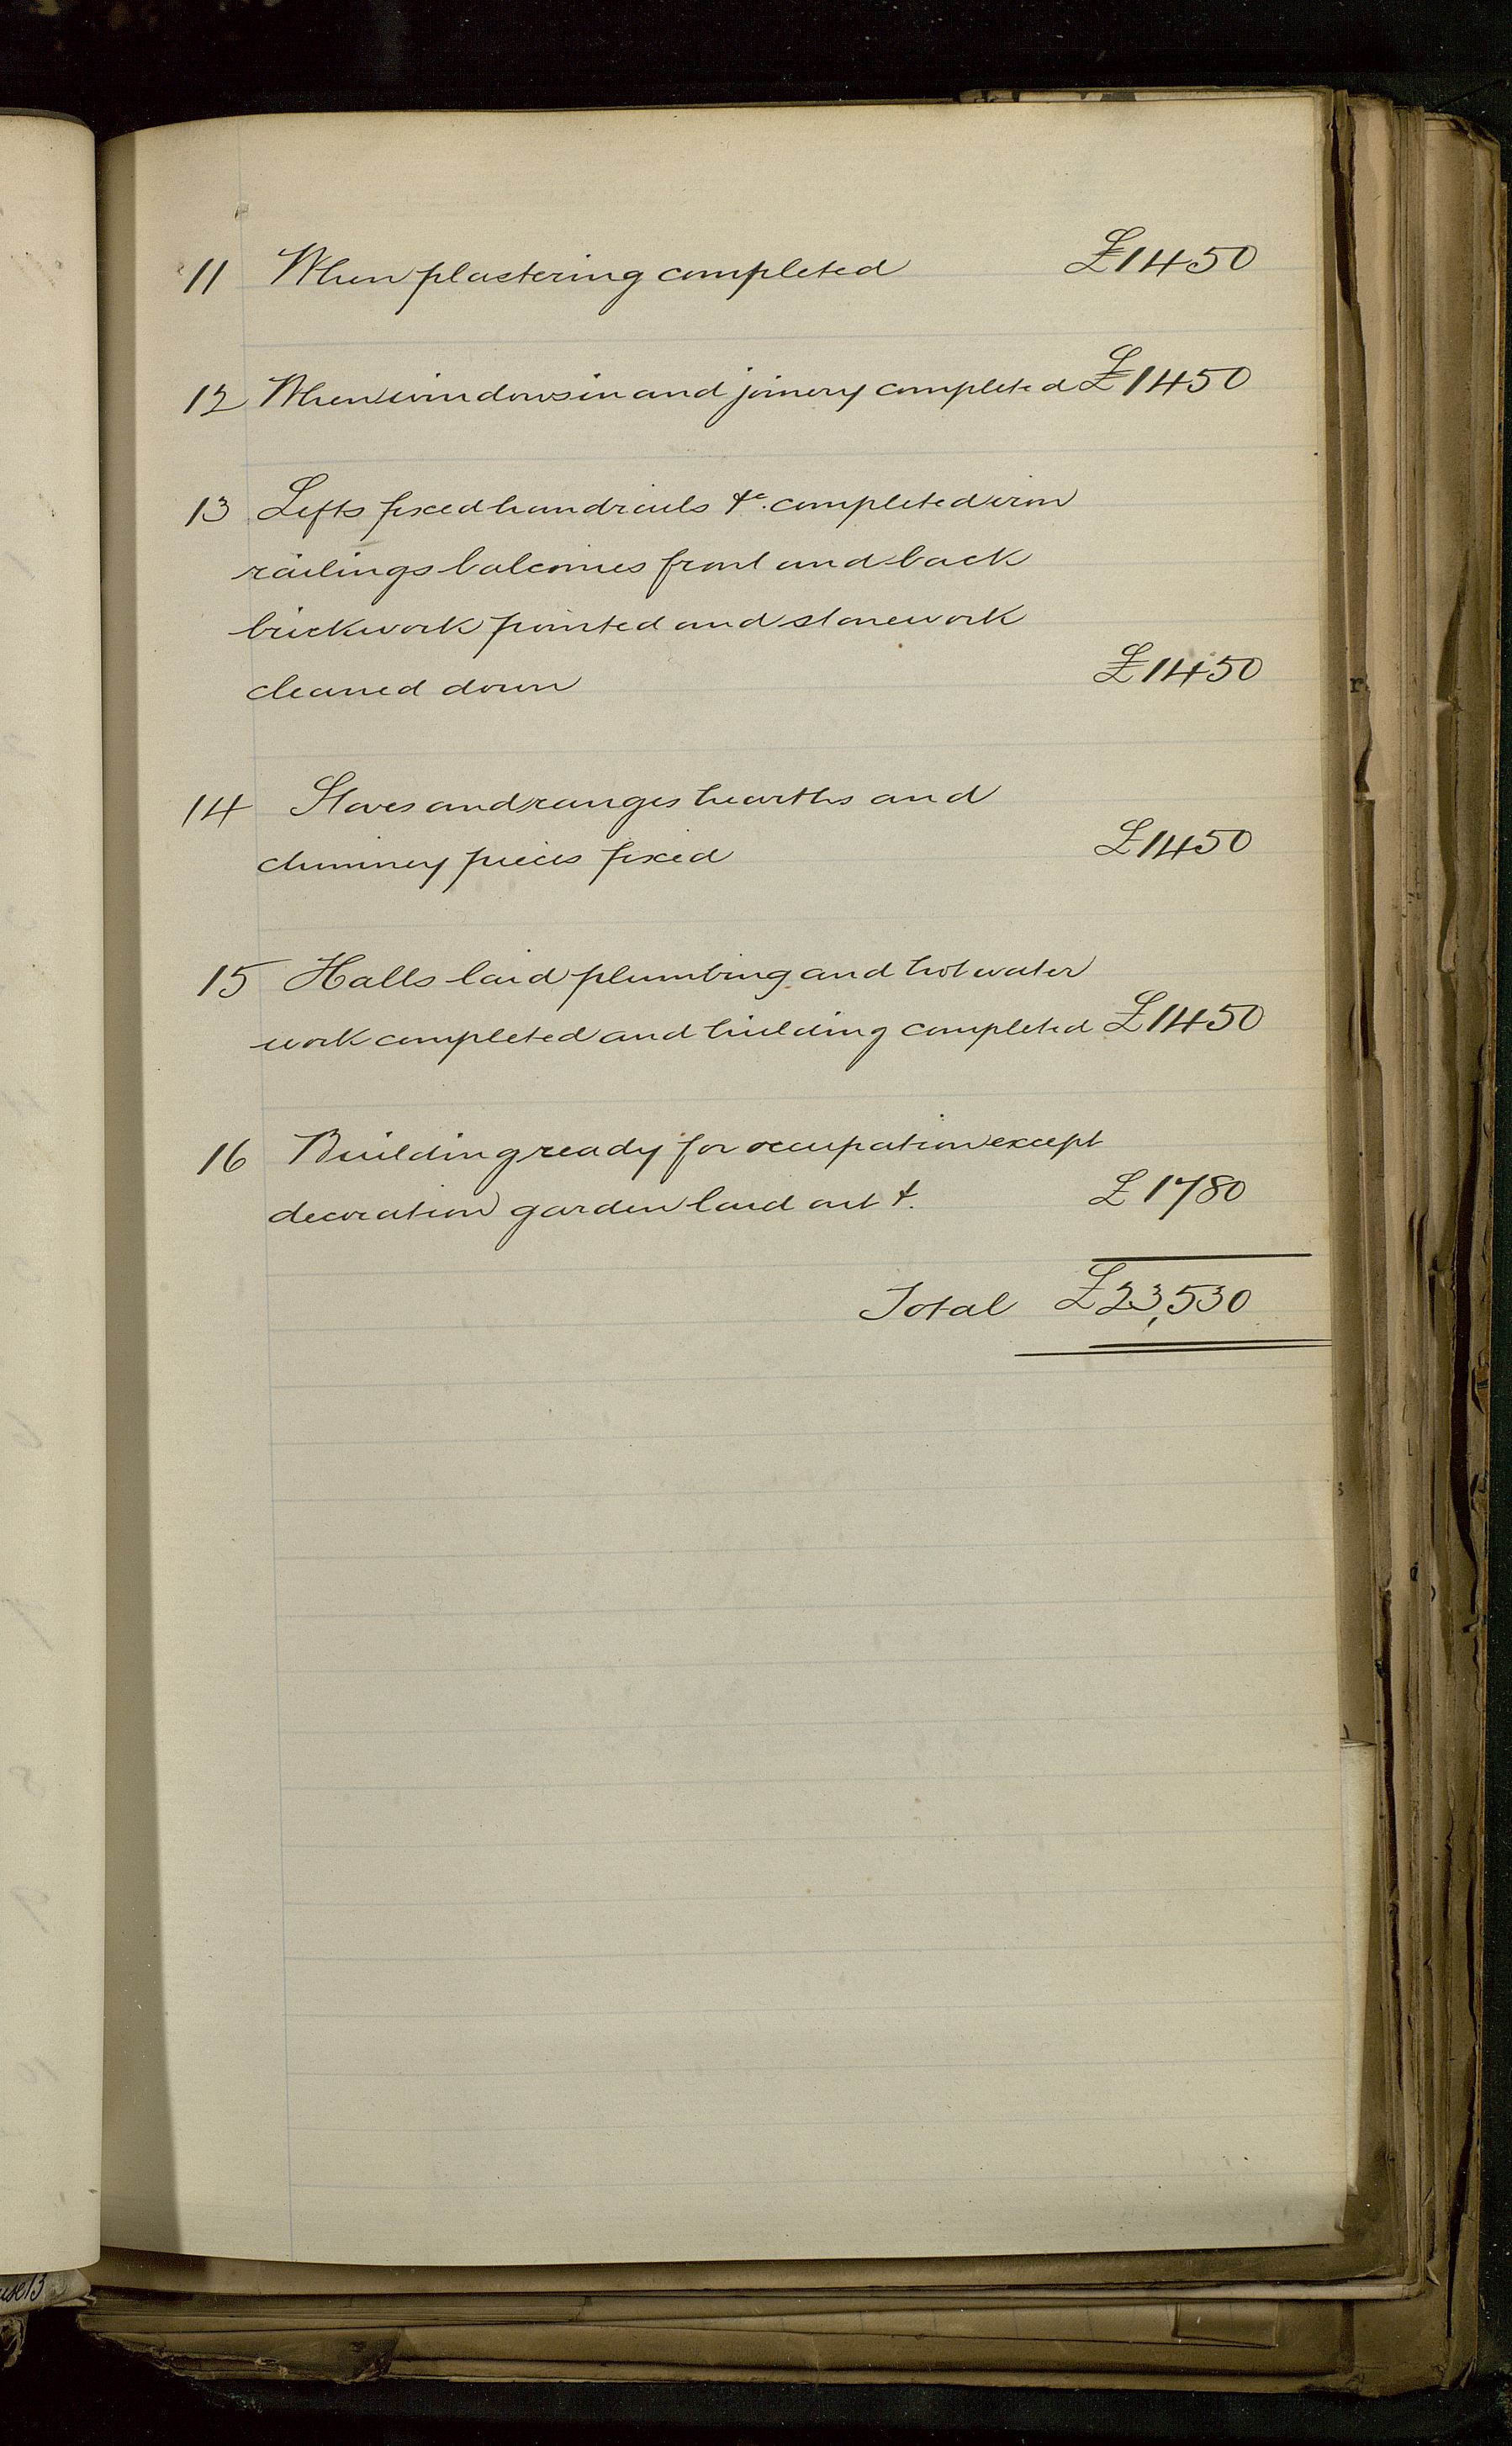 11 When plastering completed £1450
12 When windows in and joinery completed £1450
13 Lifts fixed handrails &c. completed iron
railings balconies front and back
brickwork pointed and stonework
cleaned down £1450
14 Stoves and ranges hearths and
chimney pieces fixed £1450
15 Halls laid plumbing and hot water
work completed and building completed £1450
16 Building ready for occupation except
decoration garden laid out &. £1780
Total £23,530